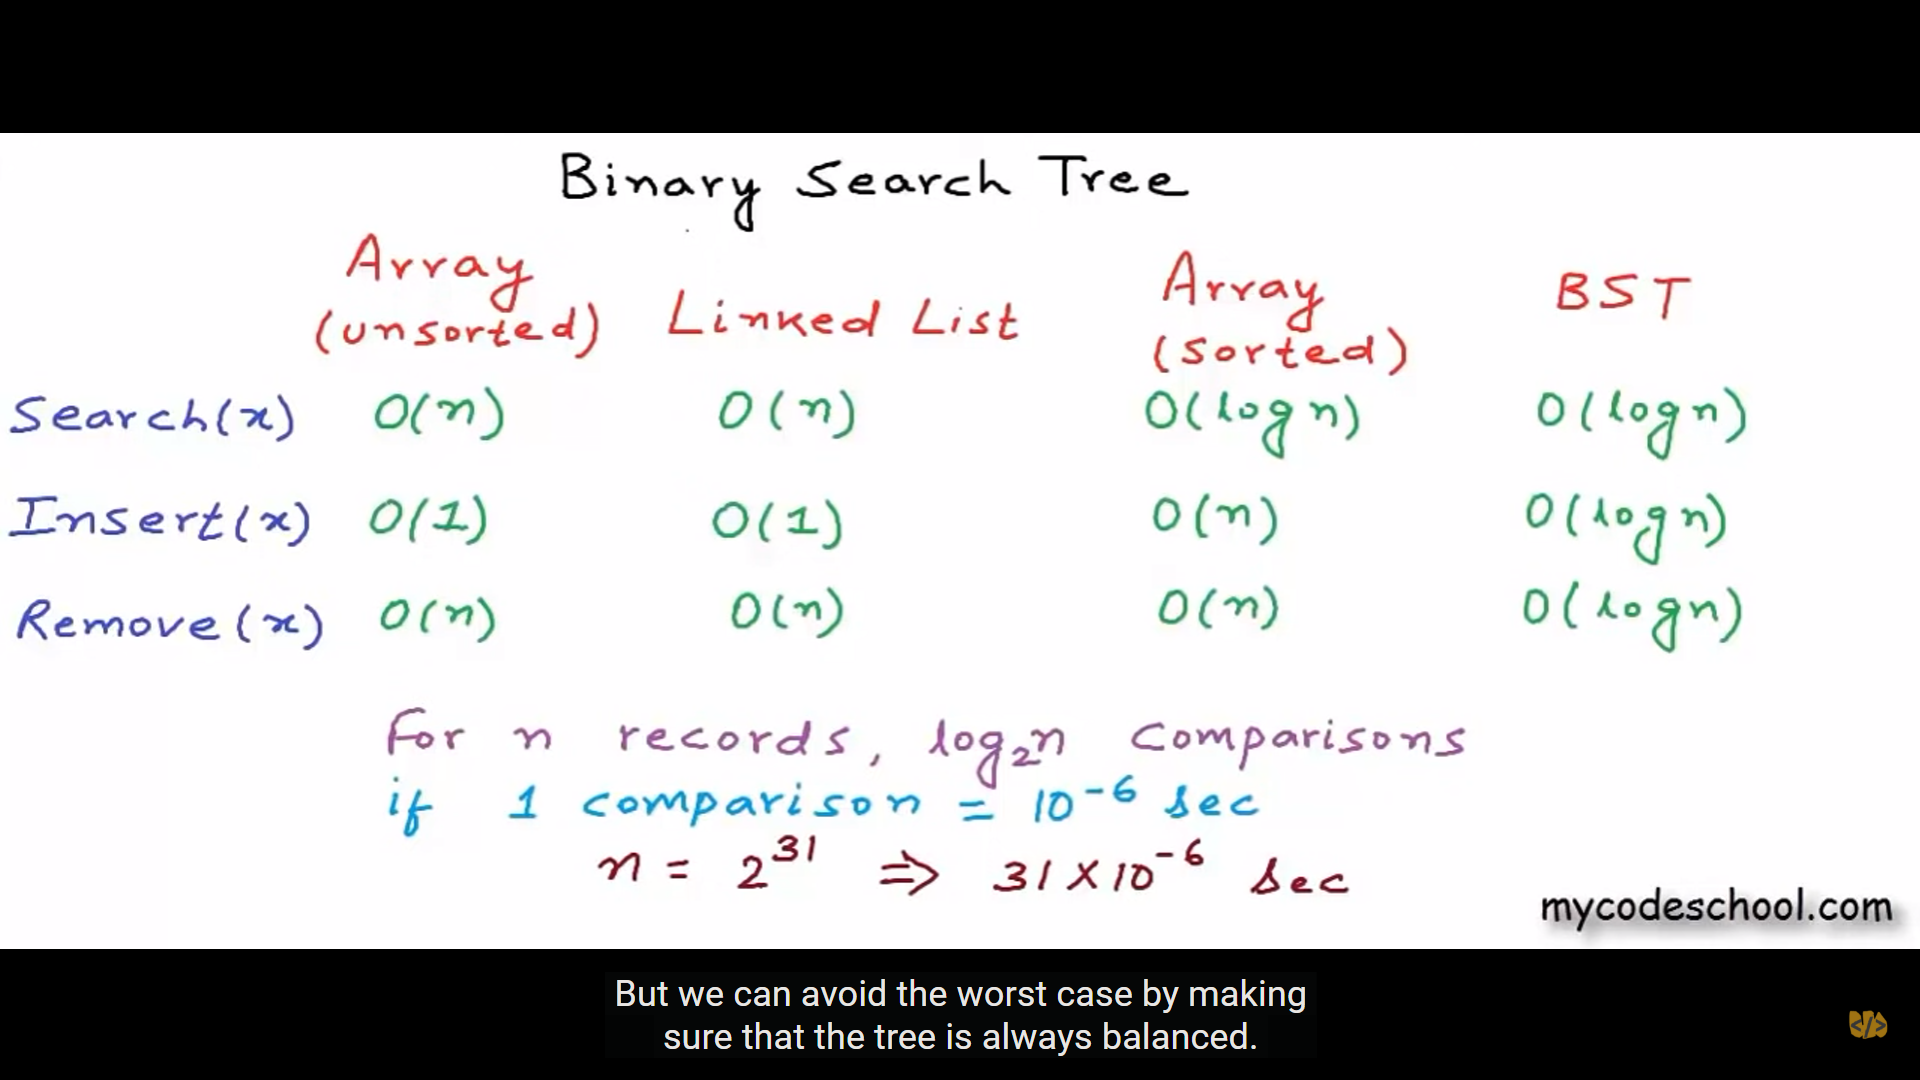 Binary Search Tree
Array (unsorted) Linked List Array (sorted) BST
Search(x) O(n) O(n) O(log n) O(log n)
Insert(x) O(1) O(1) O(n) O(log n)
Remove(x) O(n) O(n) O(n) O(log n)
For n records, log₂n comparisons
if 1 comparison = 10⁻⁶ sec
n = 2³¹ ⇒ 31 × 10⁻⁶ sec
mycodeschool.com
But we can avoid the worst case by making
sure that the tree is always balanced.